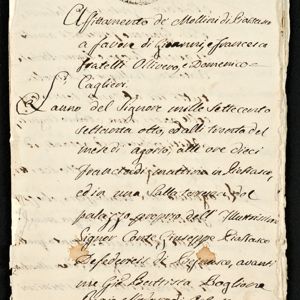 Affittamento de Mollini di Piasco
a favore di Gioanni, e Francesco
fratelli Ollivero, e Domenico
Caglieri
L'anno del Signore mille settecento
settanta otto, ed alli trenta del
mese di agosto, alle ore dieci
francesi di mattina in Piasco,
ed in una Salla terrena del
palazzo proprio dell' Illustrissimo
Signor Conte Giuseppe Piasco
di avanti
me Gio Battista